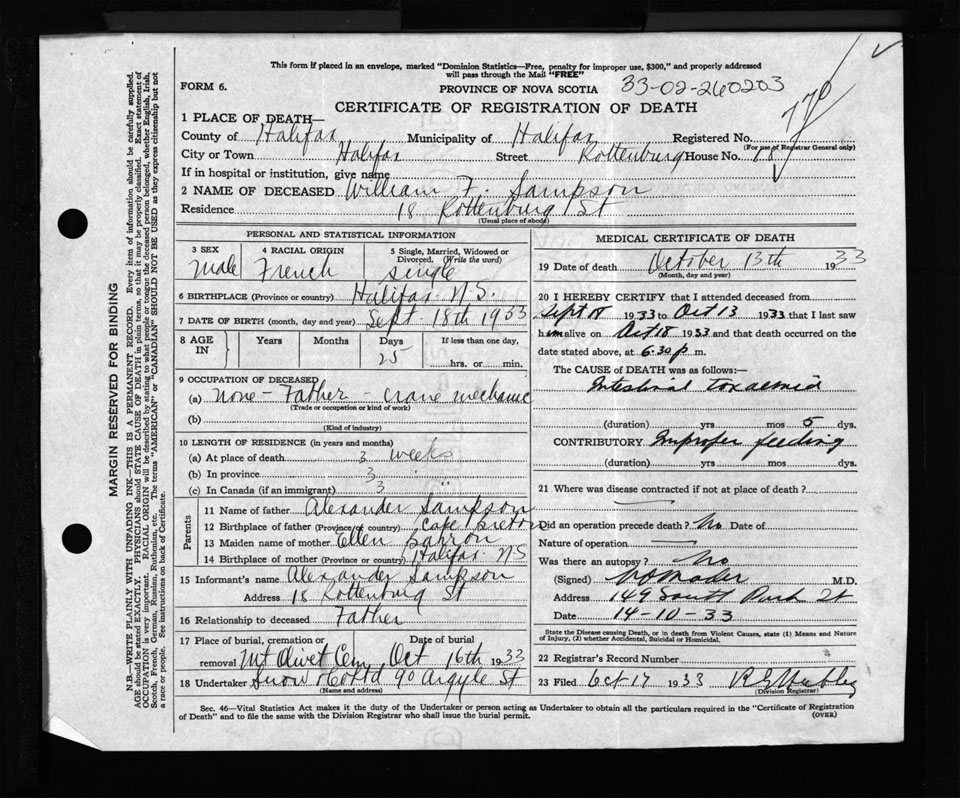 This form if placed in an envelope, marked "Dominion Statistics—Free, penalty for improper use, $300," and properly addressed
will pass through the Mail "FREE"
FORM 6.
PROVINCE OF NOVA SCOTIA
33-02-260203
CERTIFICATE OF REGISTRATION OF DEATH
1 PLACE OF DEATH—
County of Halifax Municipality of Halifax Registered No.
(For use of Registrar General only)
City or Town Halifax Street Rottenburg House No. 18
If in hospital or institution, give name
2 NAME OF DECEASED William F. Sampson
Residence 18 Rottenburg St
(Usual place of abode)
PERSONAL AND STATISTICAL INFORMATION
3 SEX 4 RACIAL ORIGIN 5 Single, Married, Widowed or
Divorced. (Write the word)
Male French Single
6 BIRTHPLACE (Province or country) Halifax N.S.
7 DATE OF BIRTH (month, day and year) Sept. 18th 1933
8 AGE IN Years Months Days If less than one day,
25
hrs. or min.
9 OCCUPATION OF DECEASED
(a) None - Father - crane mechanic
(Trade or occupation or kind of work)
(b)
(Kind of industry)
10 LENGTH OF RESIDENCE (in years and months)
(a) At place of death 3 weeks
(b) In province 3 "
(c) In Canada (if an immigrant) 3
Parents
11 Name of father Alexander Sampson
12 Birthplace of father (Province or country) Cape Breton
13 Maiden name of mother Ellen Barron
14 Birthplace of mother (Province or country) Halifax NS
15 Informant's name Alexander Sampson
Address 18 Rottenburg St
16 Relationship to deceased Father
17 Place of burial, cremation or Date of burial
removal Mt Olivet Cem Oct 16th 1933
18 Undertaker Snow & Co Ltd 90 Argyle St
(Name and address)
MEDICAL CERTIFICATE OF DEATH
19 Date of death October 13th 1933
(Month, day and year)
20 I HEREBY CERTIFY that I attended deceased from
Sept 18 1933 to Oct 13 1933 that I last saw
him alive on Oct 18 1933 and that death occurred on the
date stated above, at 6.30 p m.
The CAUSE of DEATH was as follows:—
Intestinal toxaemia
(duration) yrs mos 5 dys.
CONTRIBUTORY Improper feeding
(duration) yrs mos dys.
21 Where was disease contracted if not at place of death?
Did an operation precede death? No Date of
Nature of operation
Was there an autopsy? No
(Signed) Mader M.D.
Address 149 South Park St
Date 14-10-33
State the Disease causing Death, or in death from Violent Causes, state (1) Means and Nature
of Injury, (2) whether Accidental, Suicidal or Homicidal.
22 Registrar's Record Number
23 Filed Oct 17 1933
(Division Registrar)
Sec. 46—Vital Statistics Act makes it the duty of the Undertaker or person acting as Undertaker to obtain all the particulars required in the "Certificate of Registration
of Death" and to file the same with the Division Registrar who shall issue the burial permit.
(OVER)
MARGIN RESERVED FOR BINDING
N.B.—WRITE PLAINLY WITH UNFADING INK—THIS IS A PERMANENT RECORD. Every item of information should be carefully supplied.
AGE should be stated EXACTLY. PHYSICIANS should STATE CAUSE OF DEATH in plain terms, so that it may be properly classified. Exact statement of
OCCUPATION is very important. RACIAL ORIGIN will be described by stating to what people or tongue the deceased person belonged, whether English, Irish,
Scotch, French, German, Russian, Ruthenian, etc. The terms "AMERICAN" or "CANADIAN" SHOULD NOT BE USED as they express citizenship but not
a race or people. See instructions on back of Certificate.